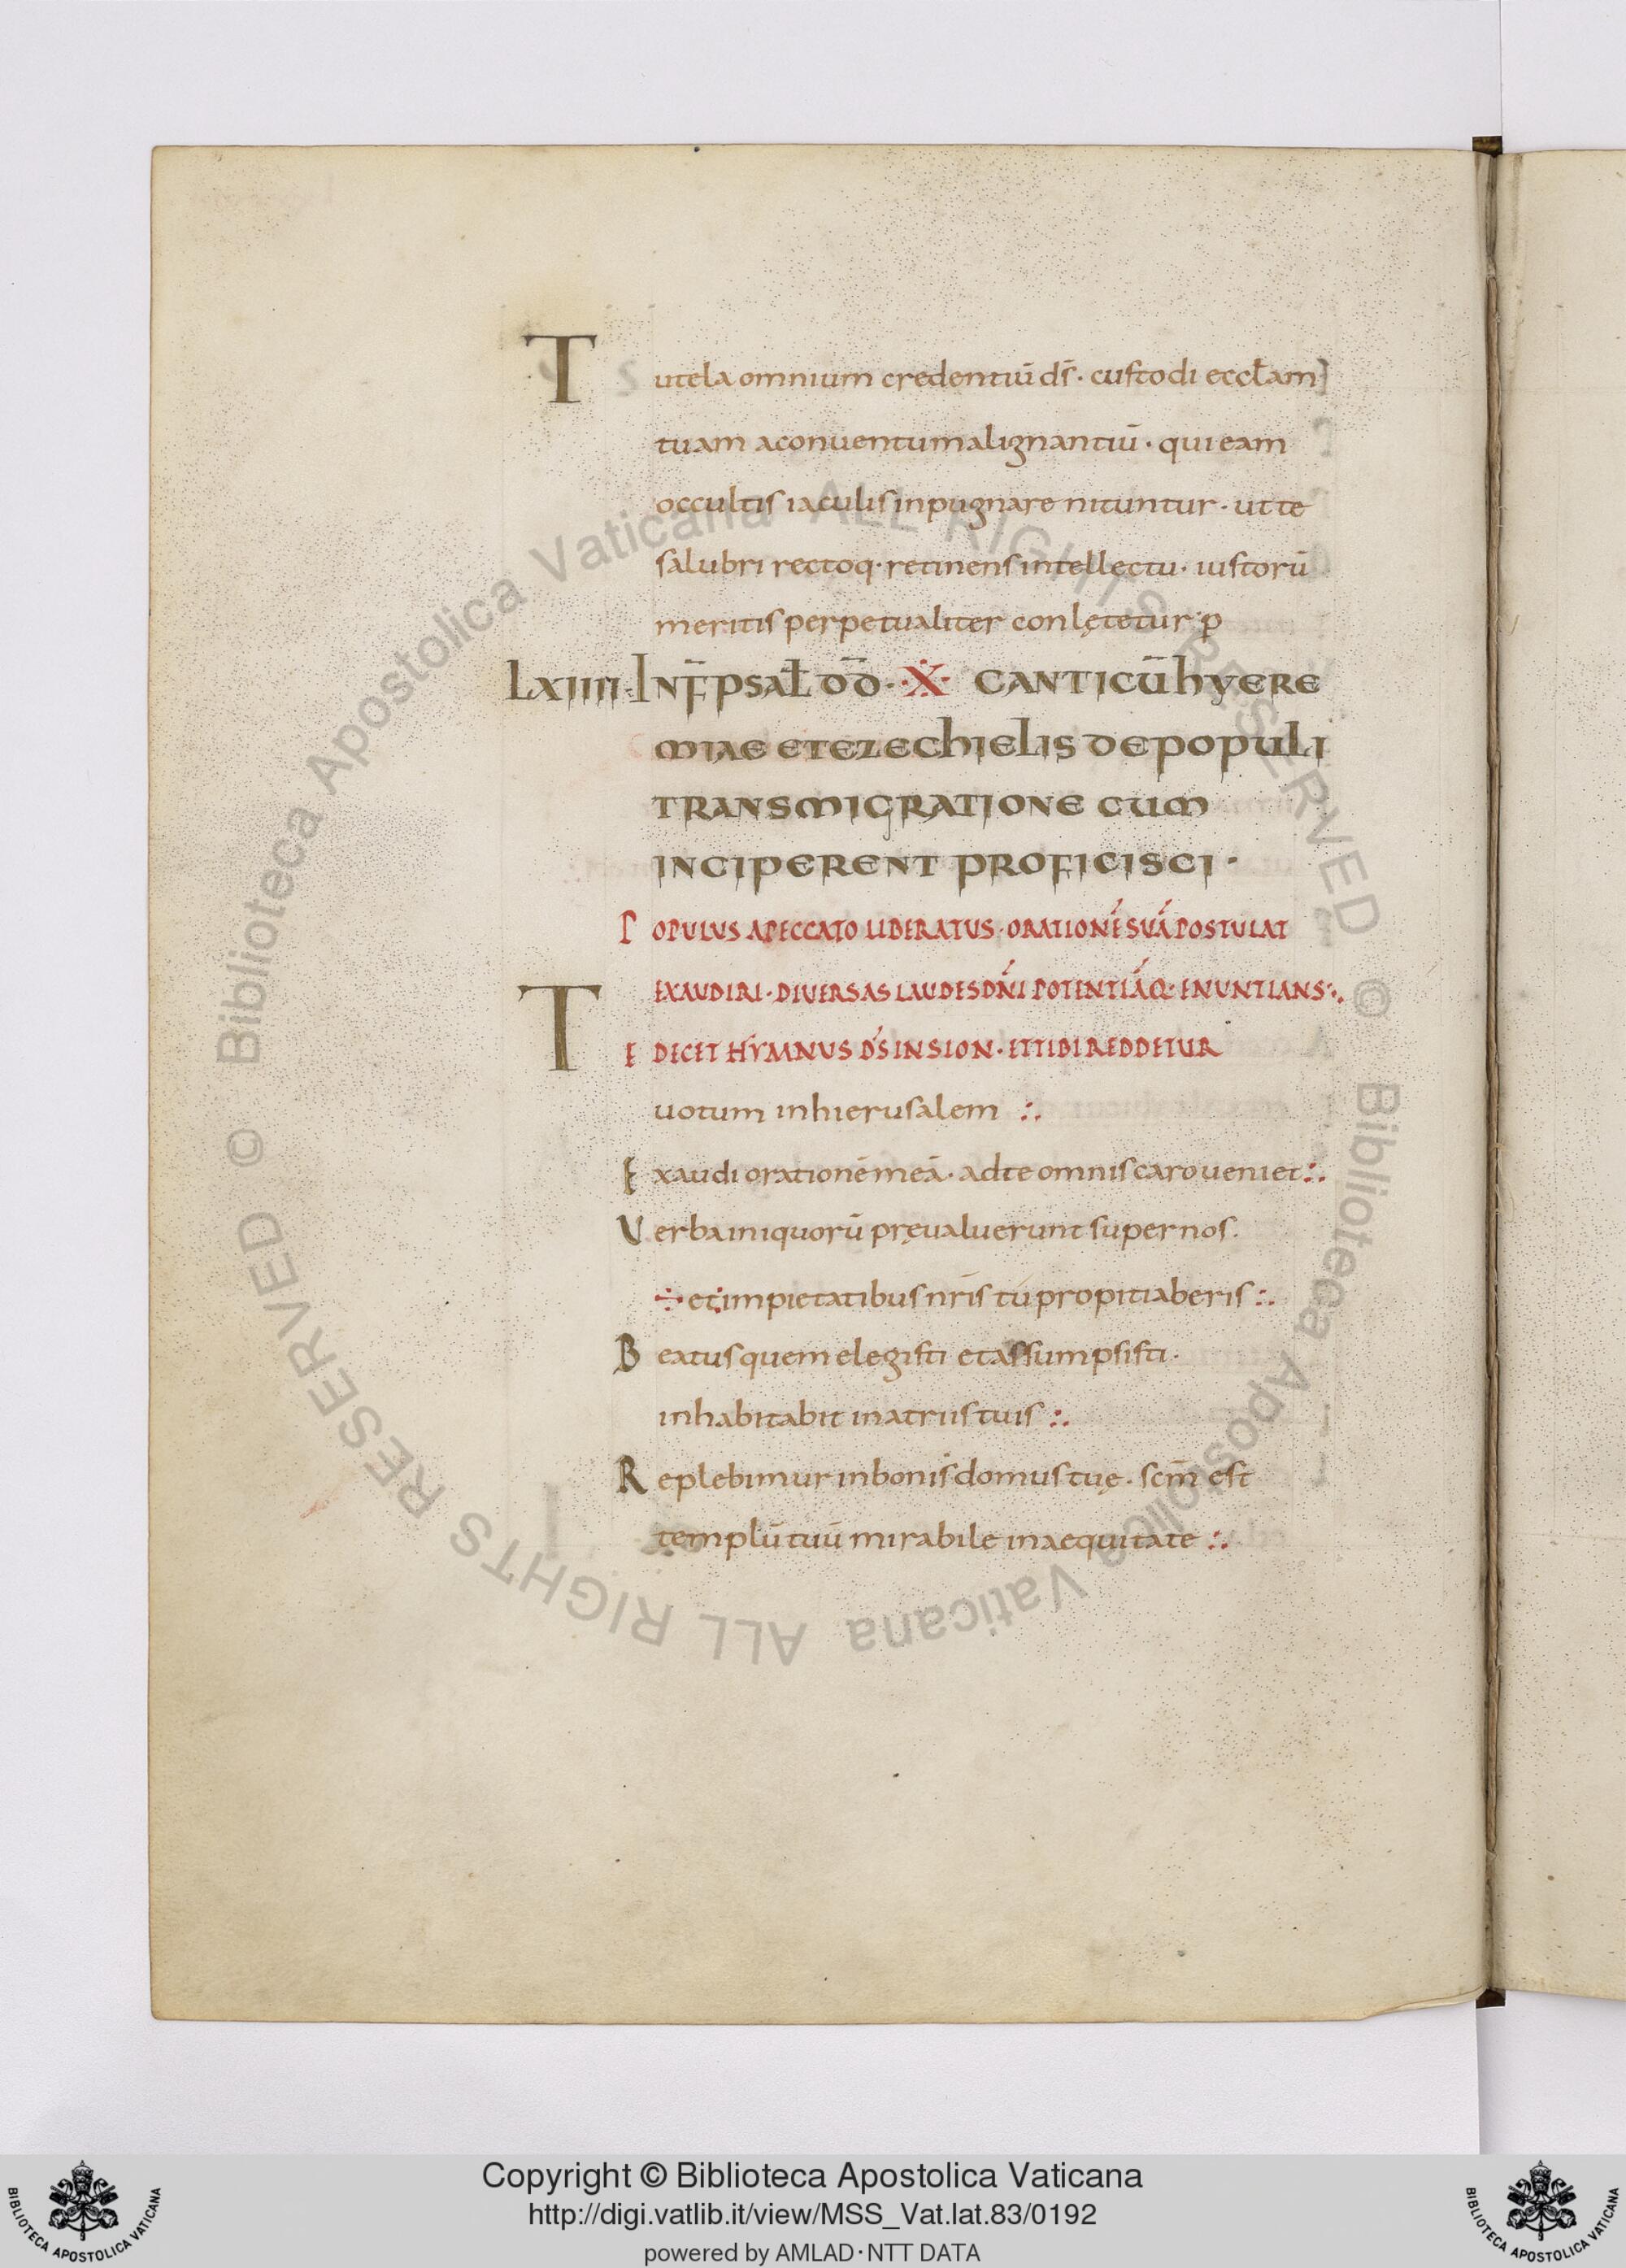 Tutela omnium credentiū dſ̄ · cuſtodi eccłam
tuam aconuentumalignantiū · quieam
occultiſ iaculiſinpugnare nituntur · ut te
ſalubri rectoq· retinenſintellectu · iuſtorū
meritiſ perpetualiter conlętetur · p
LXIIII · INF̄ PSAŁ DD̄ · X CANTICŪ hYERE
MIAE ETEZEChIELIS DEPOPULI
TRANSMIGRATIONE CUM
INCIPERENT PROFICISCI ·
POPULUS APECCATO LIBERATUS · ORATIONÉ SUÁ POSTULAT
EXAUDIRI · DIVERSAS LAUDESDŃI POTENTIÁQ· ENUNTIANS :·
TE DECET HYMNUS D́S INSION · ETTIBIREDDETUR
uotum inhieruſalem :·
Exaudi orationē meā · adte omniſ caro ueniet :·
Verbainiquorū pręualuerunt ſuper noſ ·
÷ et : impietatibuſ nr̄iſ tú propitiaberiſ :·
Beatuſ quem elegiſti etaſſumpſiſti ·
inhabitabit inatriiſ tuiſ :·
Replebimur inboniſ domuſ tuę · ſcm̄ eſt
templū tuū mirabile inaequitate :·
© Biblioteca Apostolica Vaticana ALL RIGHTS RESERVED
© Biblioteca Apostolica Vaticana ALL RIGHTS RESERVED
Copyright © Biblioteca Apostolica Vaticana
http://digi.vatlib.it/view/MSS_Vat.lat.83/0192
powered by AMLAD·NTT DATA
BIBLIOTECA APOSTOLICA VATICANA
BIBLIOTECA APOSTOLICA VATICANA